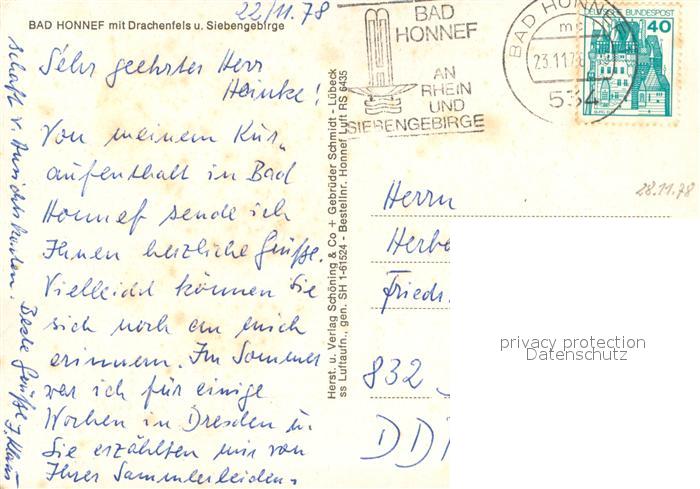 22/11.78
BAD HONNEF mit Drachenfels u. Siebengebirge
Sehr geehrter Herr
Heinke!
Von meinem Kur-
aufenthalt in Bad
Honnef sende ich
Ihnen herzliche Grüße.
Vielleicht können Sie
sich noch an mich
erinnern. Im Sommer
war ich für einige
Wochen in Dresden u.
Sie erzählten mir von
Ihrer Sammlerleiden-
schaft v. Ansichtskarten. Beste Grüße
Herst. u. Verlag Schöning & Co + Gebrüder Schmidt - Lübeck
ss Luftaufn., gen. SH 1-61524 - Bestellnr. Honnef Luft RS 6435
BAD
HONNEF
AN
RHEIN
UND
SIEBENGEBIRGE
BAD HONNEF
23.11.78
534
DEUTSCHE BUNDESPOST
40
28.11.78
Herrn
Herbe
Friedr.
832
DD
privacy protection
Datenschutz